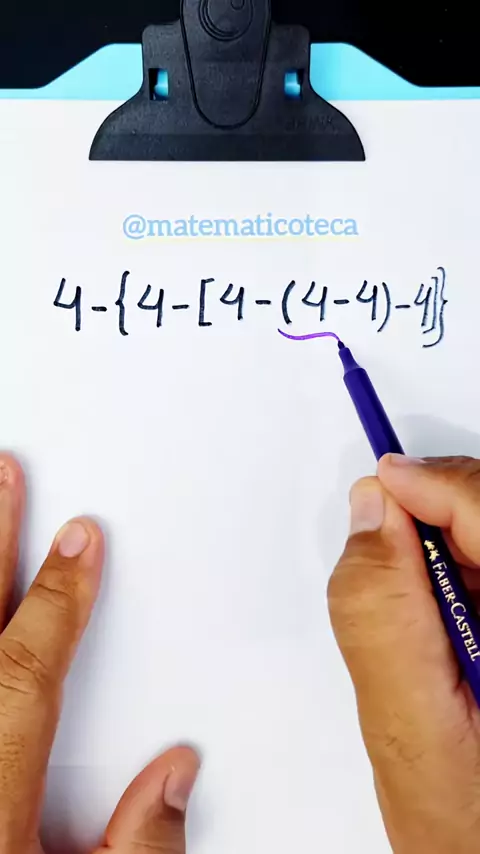 @matematicoteca
4-{4-[4-(4-4)-4]}
FABER-CASTELL